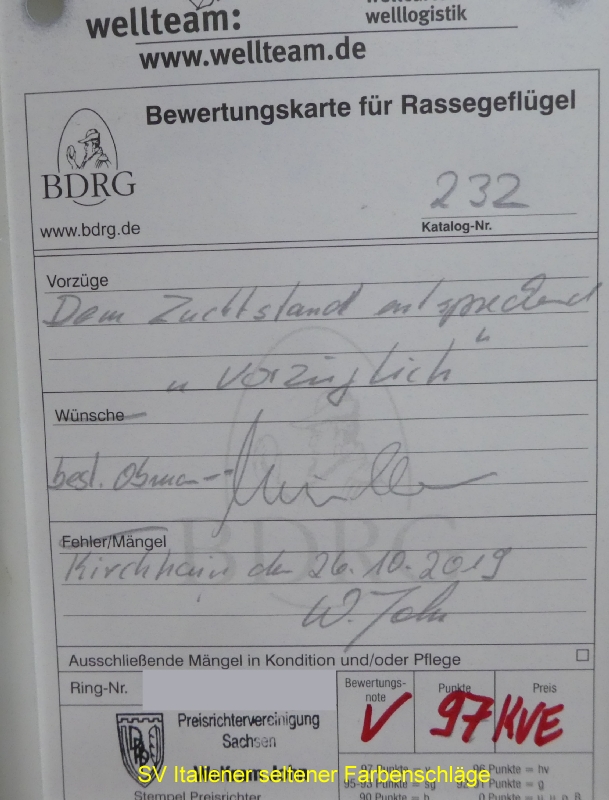 wellteam:
welllogistik
www.wellteam.de
Bewertungskarte für Rassegeflügel
BDRG
www.bdrg.de
232
Katalog-Nr.
Vorzüge
Dem Zuchtstand entsprechend
"vorzüglich"
Wünsche
best. Obman
Fehler/Mängel
Kirchhain den 26.10.2019
W. John
Ausschließende Mängel in Kondition und/oder Pflege
Ring-Nr.
Bewertungs-
note
Punkte
Preis
V
97
KVE
Preisrichtervereinigung
Sachsen
SV Italiener seltener Farbenschläge
97 Punkte = v
96 Punkte = hv
95-93 Punkte = sg
Punkte = g
90 Punkte = b
0 Punkte = u
Stempel Preisrichter